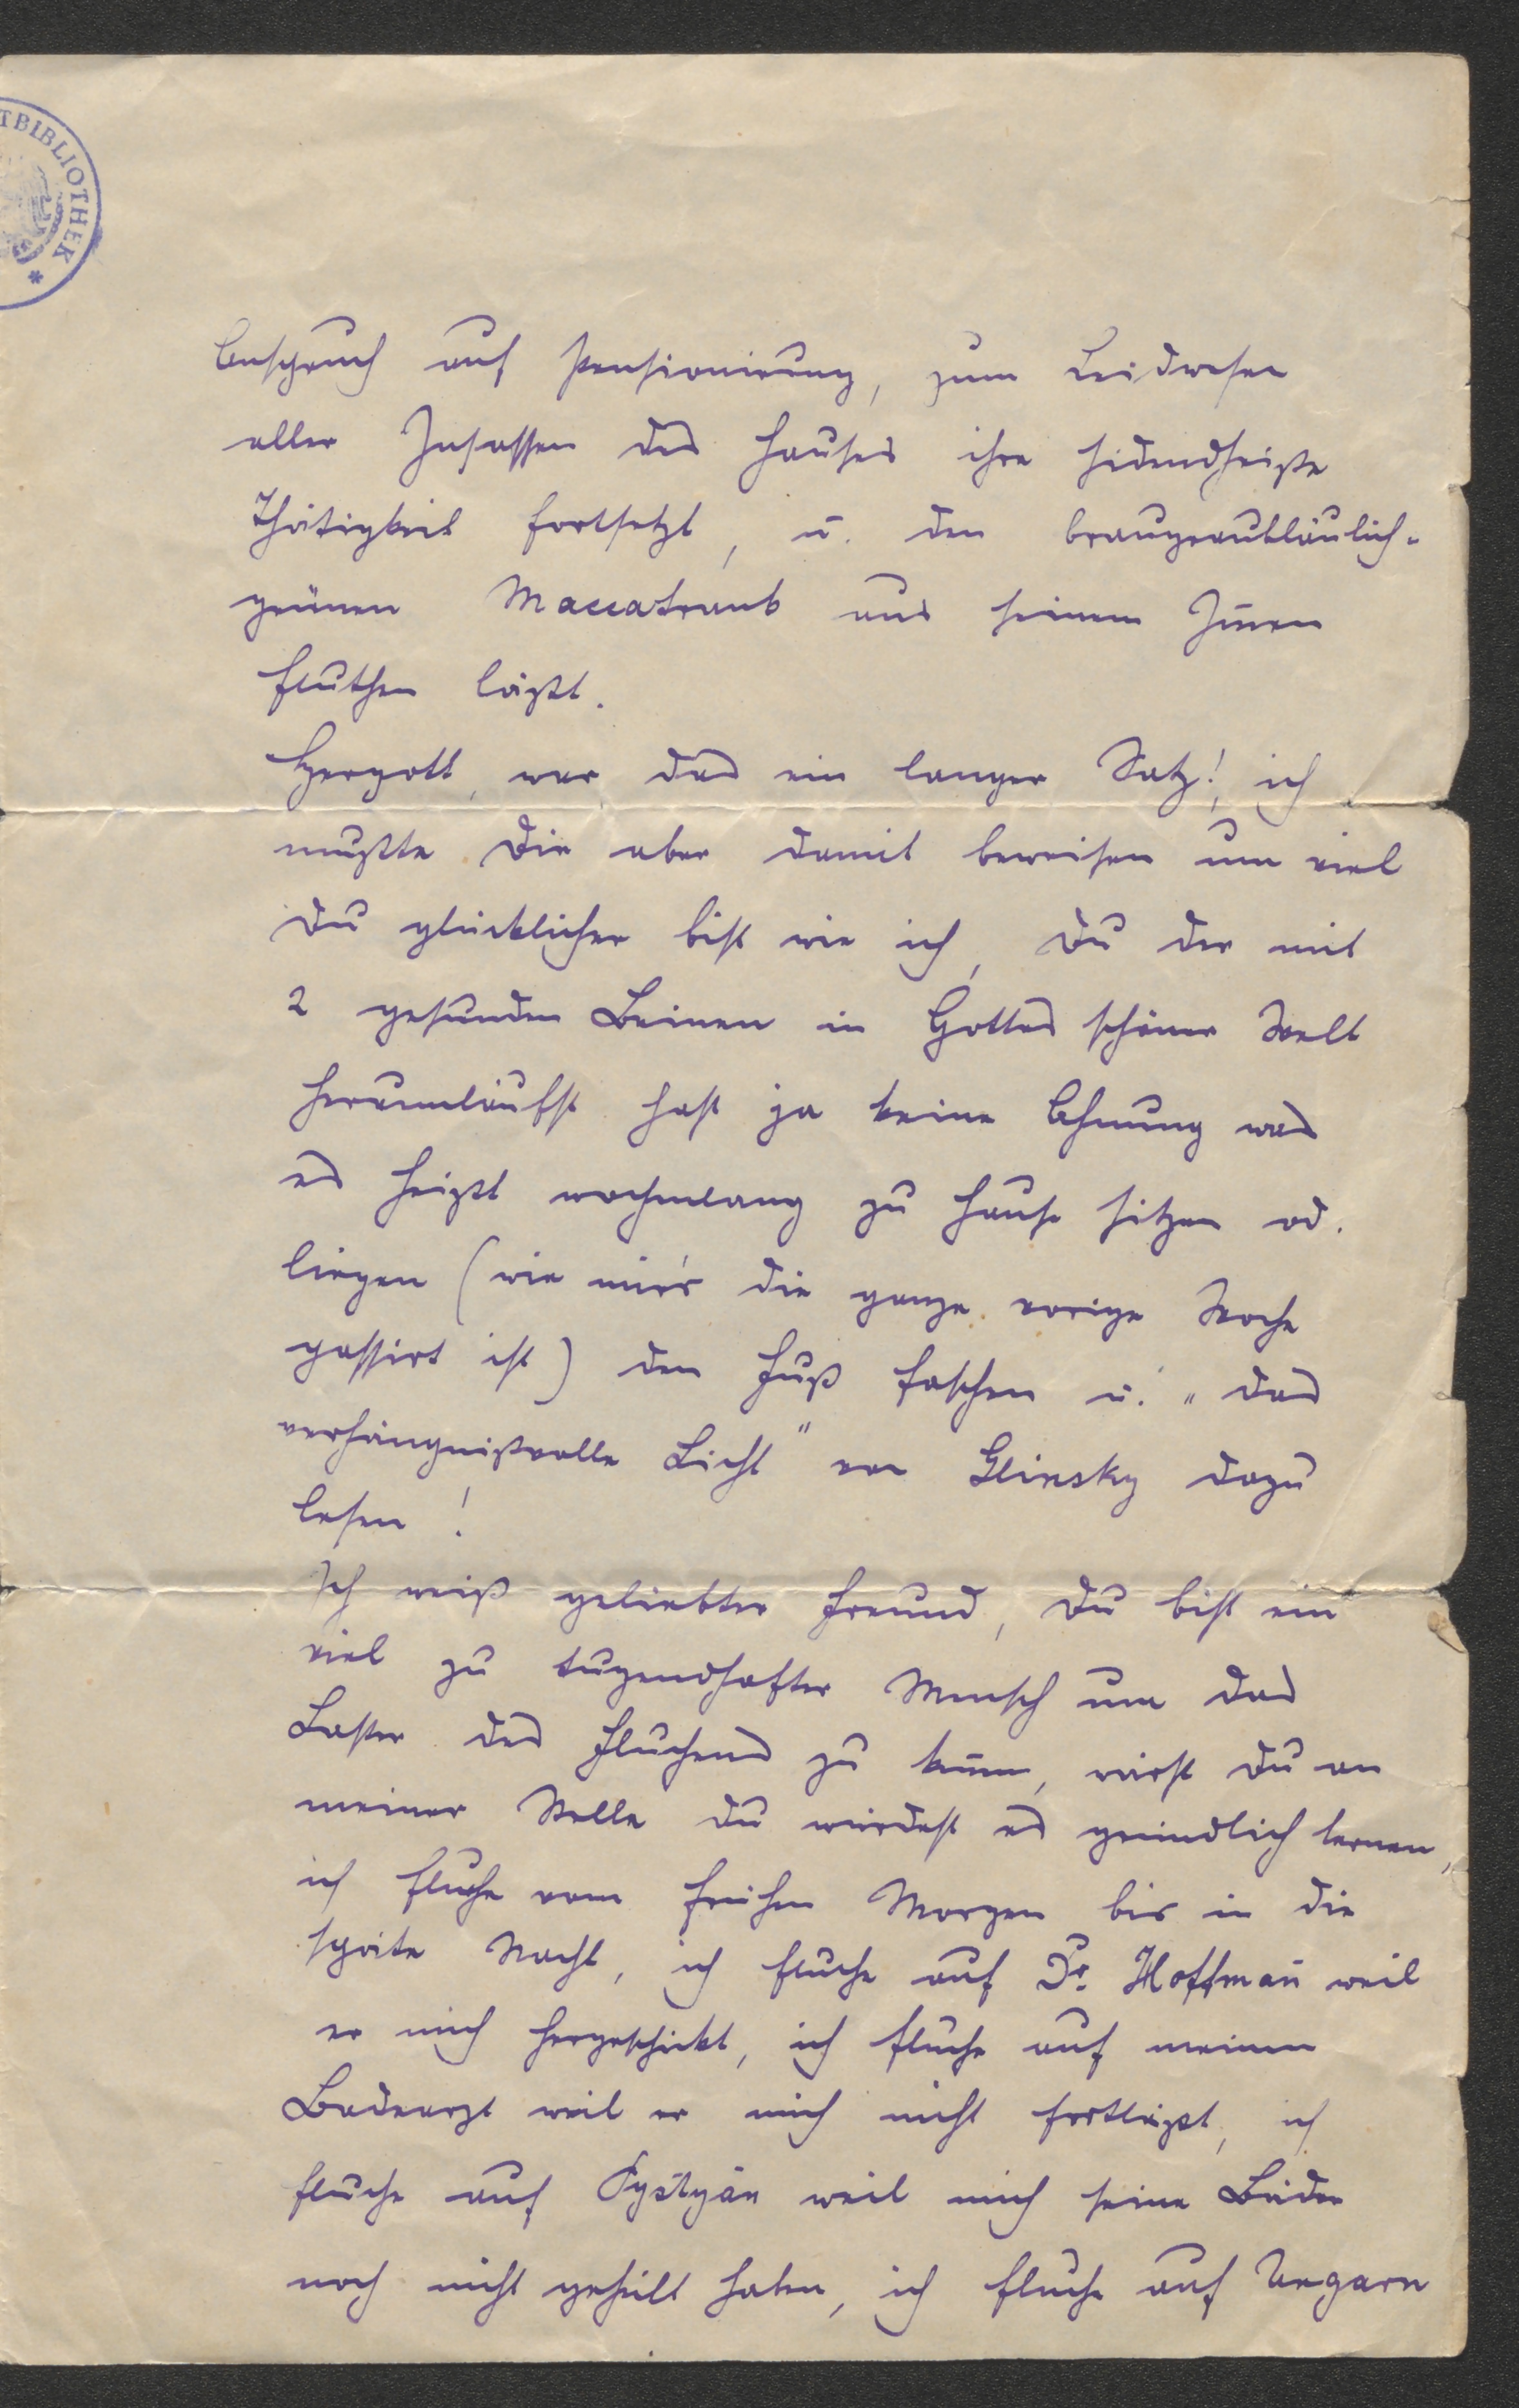 TBIBLIOTHEK *
Anspruch auf Pensionirung, zum Leidwesen
aller Insassen des Hauses ihre sidendheiße
Thätigkeit fortsetzt, u. den braungraubläulich-
grünen Maccatrank aus seinem Iñern
fluthen läßt.
Herrgott, war das ein langer Satz!, ich
mußte Dir aber damit beweisen um viel
Du glücklicher bist wie ich, Du der mit
2 gesunden Beinen in Gottes schöner Welt
herumläufst hast ja keine Ahnung was
es heißt wochenlang zu Hause sitzen od.
liegen (wie mir's die ganze vorige Woche
passirt ist) den Fuß faschen u. "das
verhängnißvolle Licht" von Glinsky dazu
lesen!
Ich weiß geliebter Freund, Du bist ein
viel zu tugendhafter Mensch um das
Laster des Fluchens zu keñen, wärst Du an
meiner Stelle Du würdest es gründlich lernen,
ich fluche vom frühen Morgen bis in die
späte Nacht, ich fluche auf Dr. Hoffmañ weil
er mich hergeschickt, ich fluche auf meinen
Badearzt weil er mich nicht fortläßt, ich
fluche auf Pystyán weil mich seine Bäder
noch nicht geheilt haben, ich fluche auf Ungarn